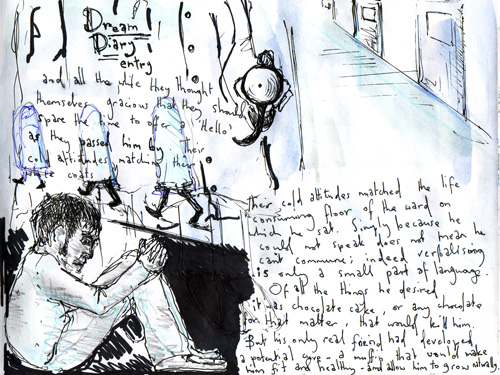 Dream
Diary
entry
and all the while they thought
themselves gracious that they should
spare the time to offer "Hello"
as they passed him by. Their
cold attitudes matching their
coats.
Their cold attitudes matched the life
consuming floor of the ward on
which he sat. Simply because he
could not speak does not mean he
can't commune; indeed verbalising
is only a small part of language.
Of all the things he desired
it was chocolate cake, or any chocolate
for that matter, that would kill him.
But his only real friend had developed
a potential cure - a muffin that would make
him fit and healthy - and allow him to grow